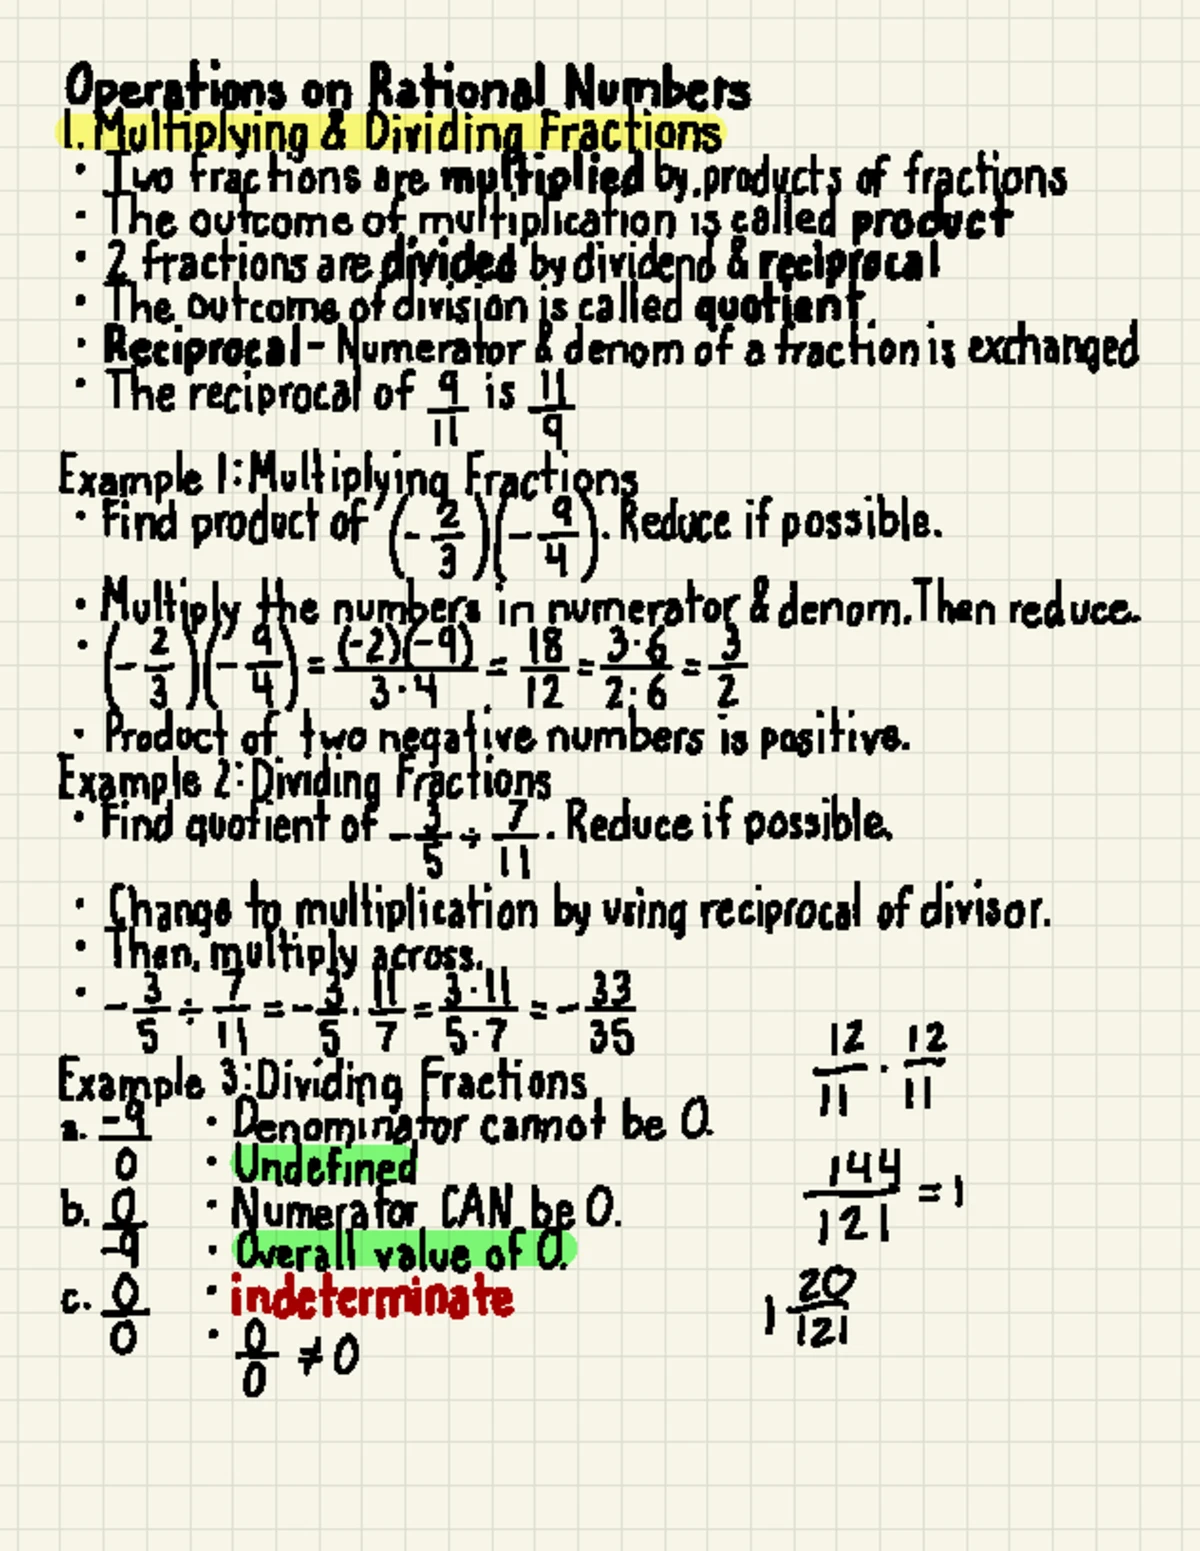 Operations on Rational Numbers
1. Multiplying & Dividing Fractions
• Two fractions are multiplied by products of fractions
• The outcome of multiplication is called product
• 2 fractions are divided by dividend & reciprocal
• The outcome of division is called quotient
• Reciprocal - Numerator & denom of a fraction is exchanged
• The reciprocal of 9/11 is 11/9
Example 1: Multiplying Fractions
• Find product of (-2/3)(-9/4). Reduce if possible.
• Multiply the numbers in numerator & denom. Then reduce.
• (-2/3)(-9/4) = (-2)(-9)/3·4 = 18/12 = 3·6/2·6 = 3/2
• Product of two negative numbers is positive.
Example 2: Dividing Fractions
• Find quotient of -3/5 ÷ 7/11. Reduce if possible.
• Change to multiplication by using reciprocal of divisor.
• Then, multiply across.
• -3/5 ÷ 7/11 = -3/5 · 11/7 = 3·11/5·7 = -33/35
Example 3: Dividing Fractions
a. -9/0 • Denominator cannot be 0.
• Undefined
b. 0/-9 • Numerator CAN be 0.
• Overall value of 0.
c. 0/0 • indeterminate
• 0/0 ≠ 0
12/11 · 12/11
144/121 = 1
1 20/121